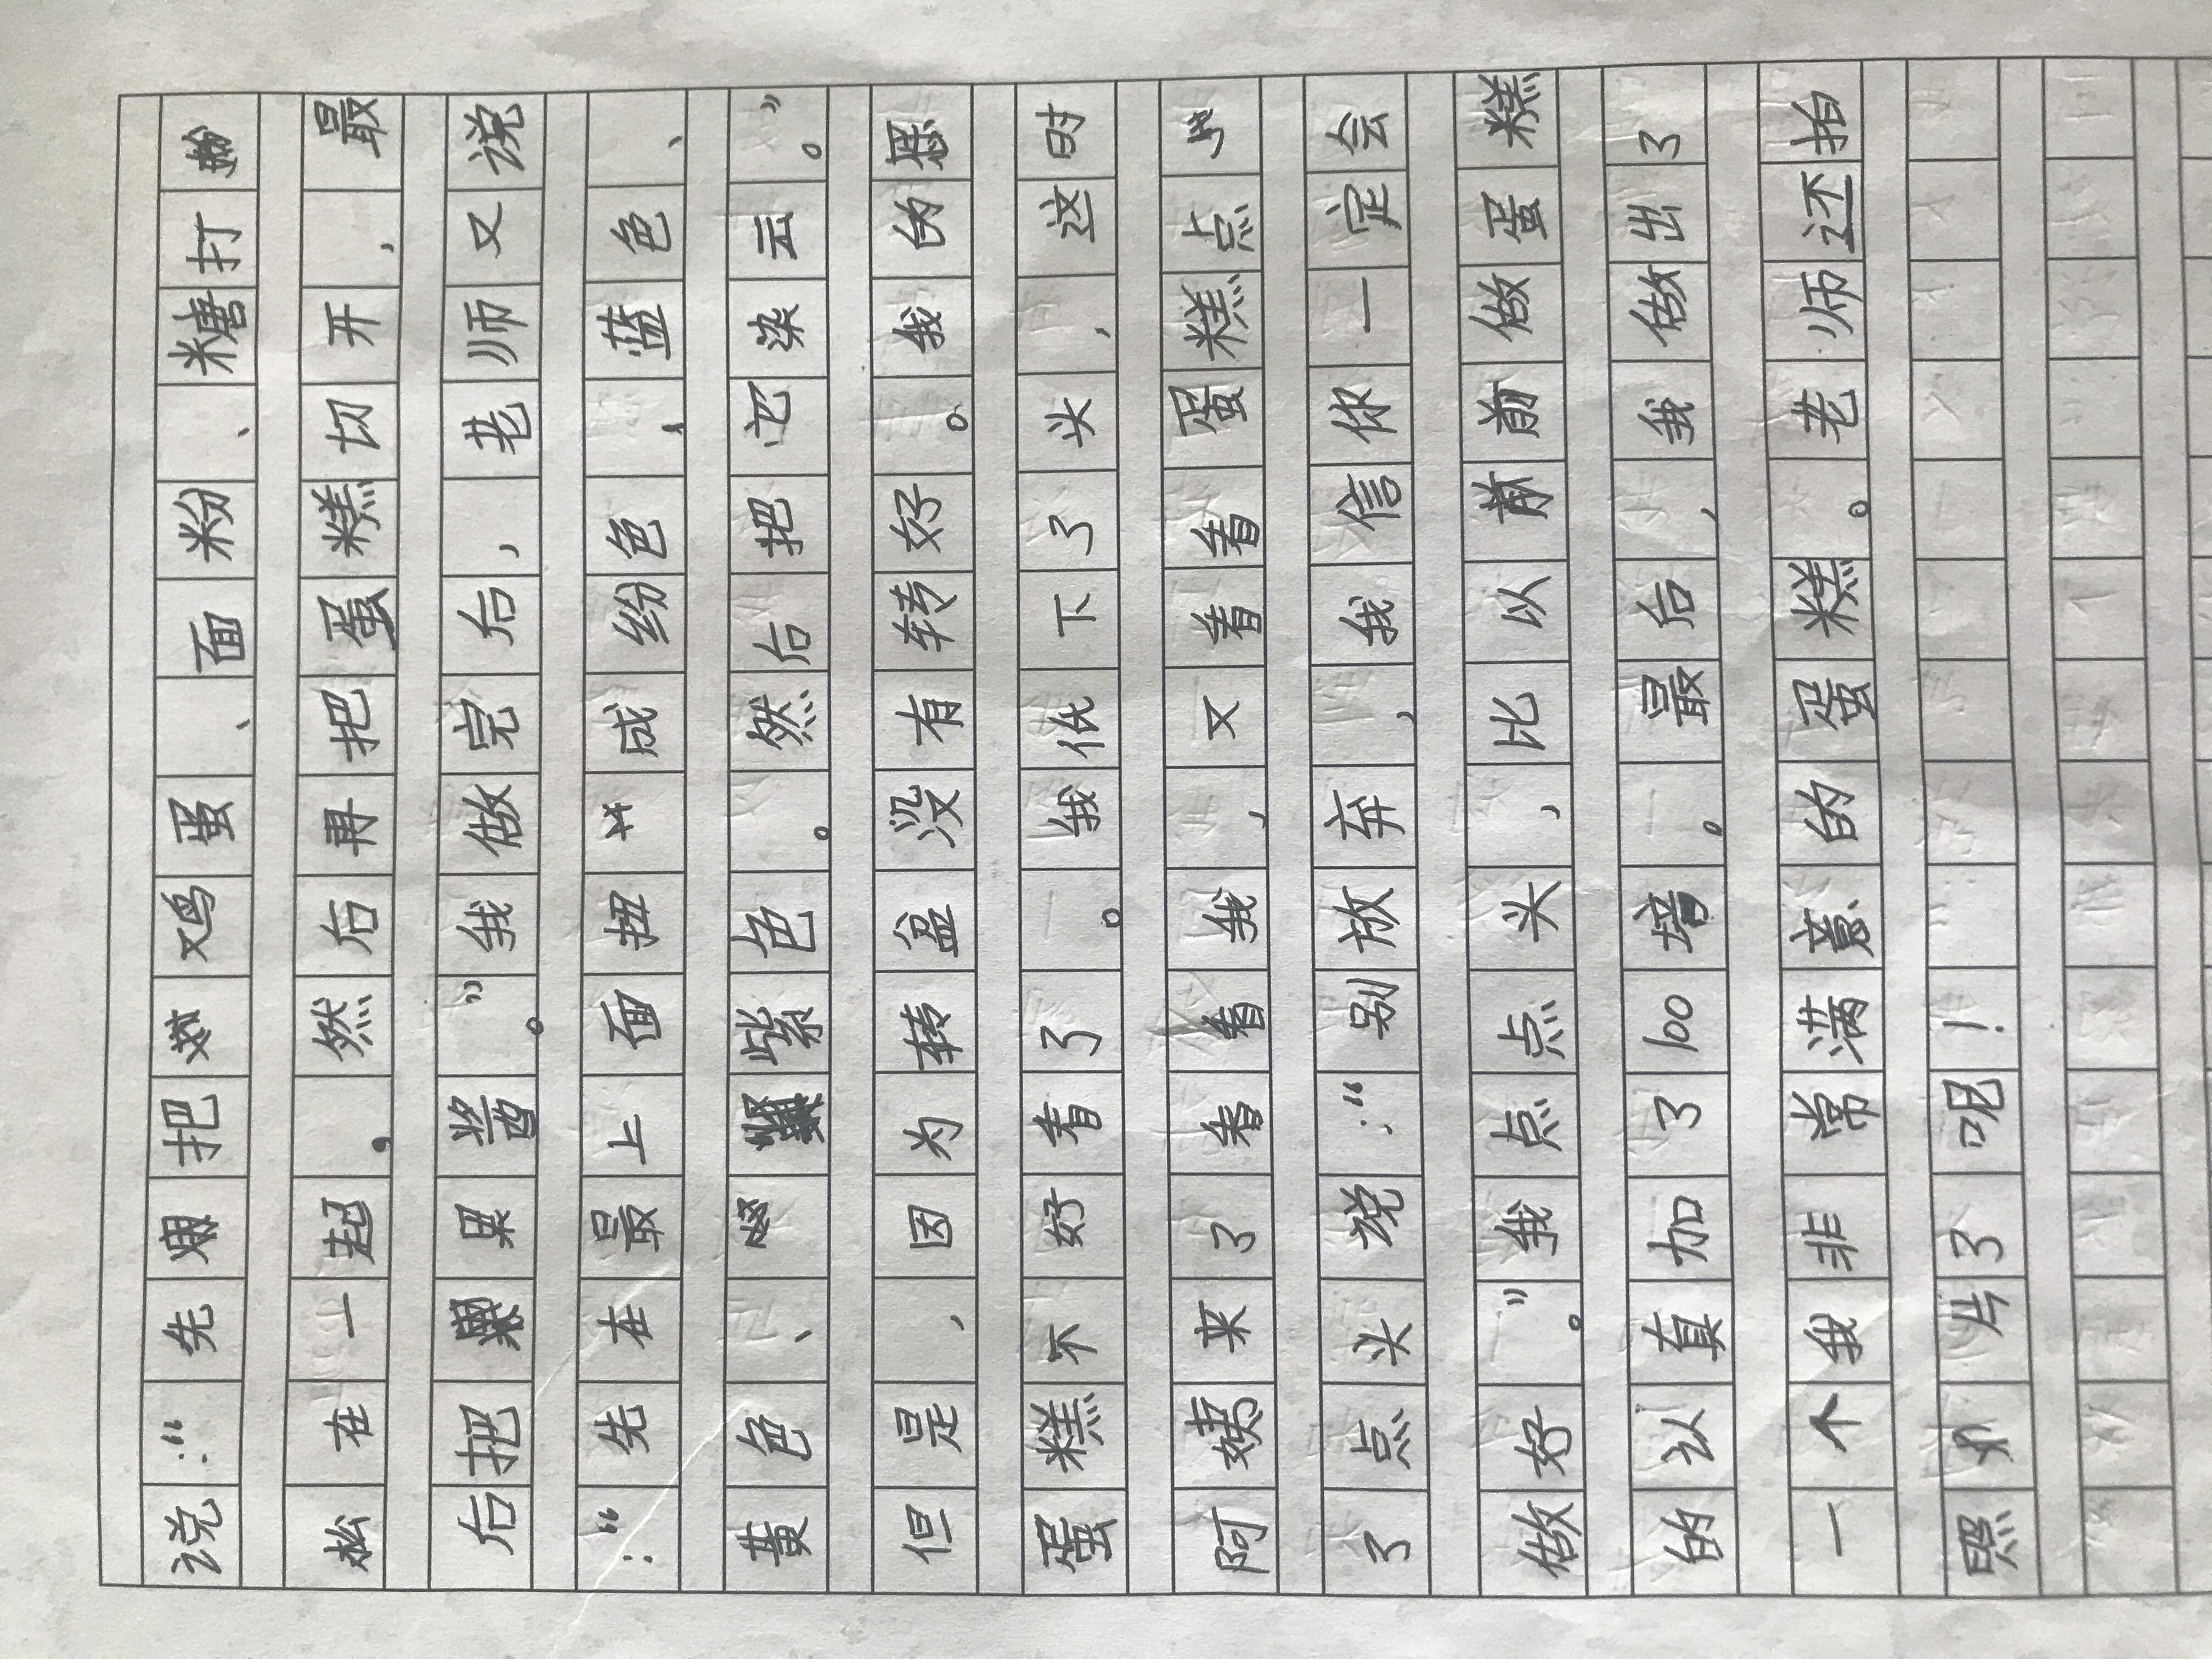 说：“先把鸡蛋、面粉、糖打
松在一起。然后再把蛋糕切开，最
后把果酱”。我做完后，老师又说
：“先在最上面扭成纷色，蓝色、
黄色、紫色。然后把它染云”。
但是，因为转盆没有转好。我的
蛋糕不好看了。我低下了头，这时
阿姨来了看看我，又看看蛋糕点
了点头说：“别放弃，我信你一定会
做好”。我点点头，比以前做蛋糕
的认真加了100培。最后，我做出了
一个我非常满意的蛋糕。老师还拍
照片了呢！